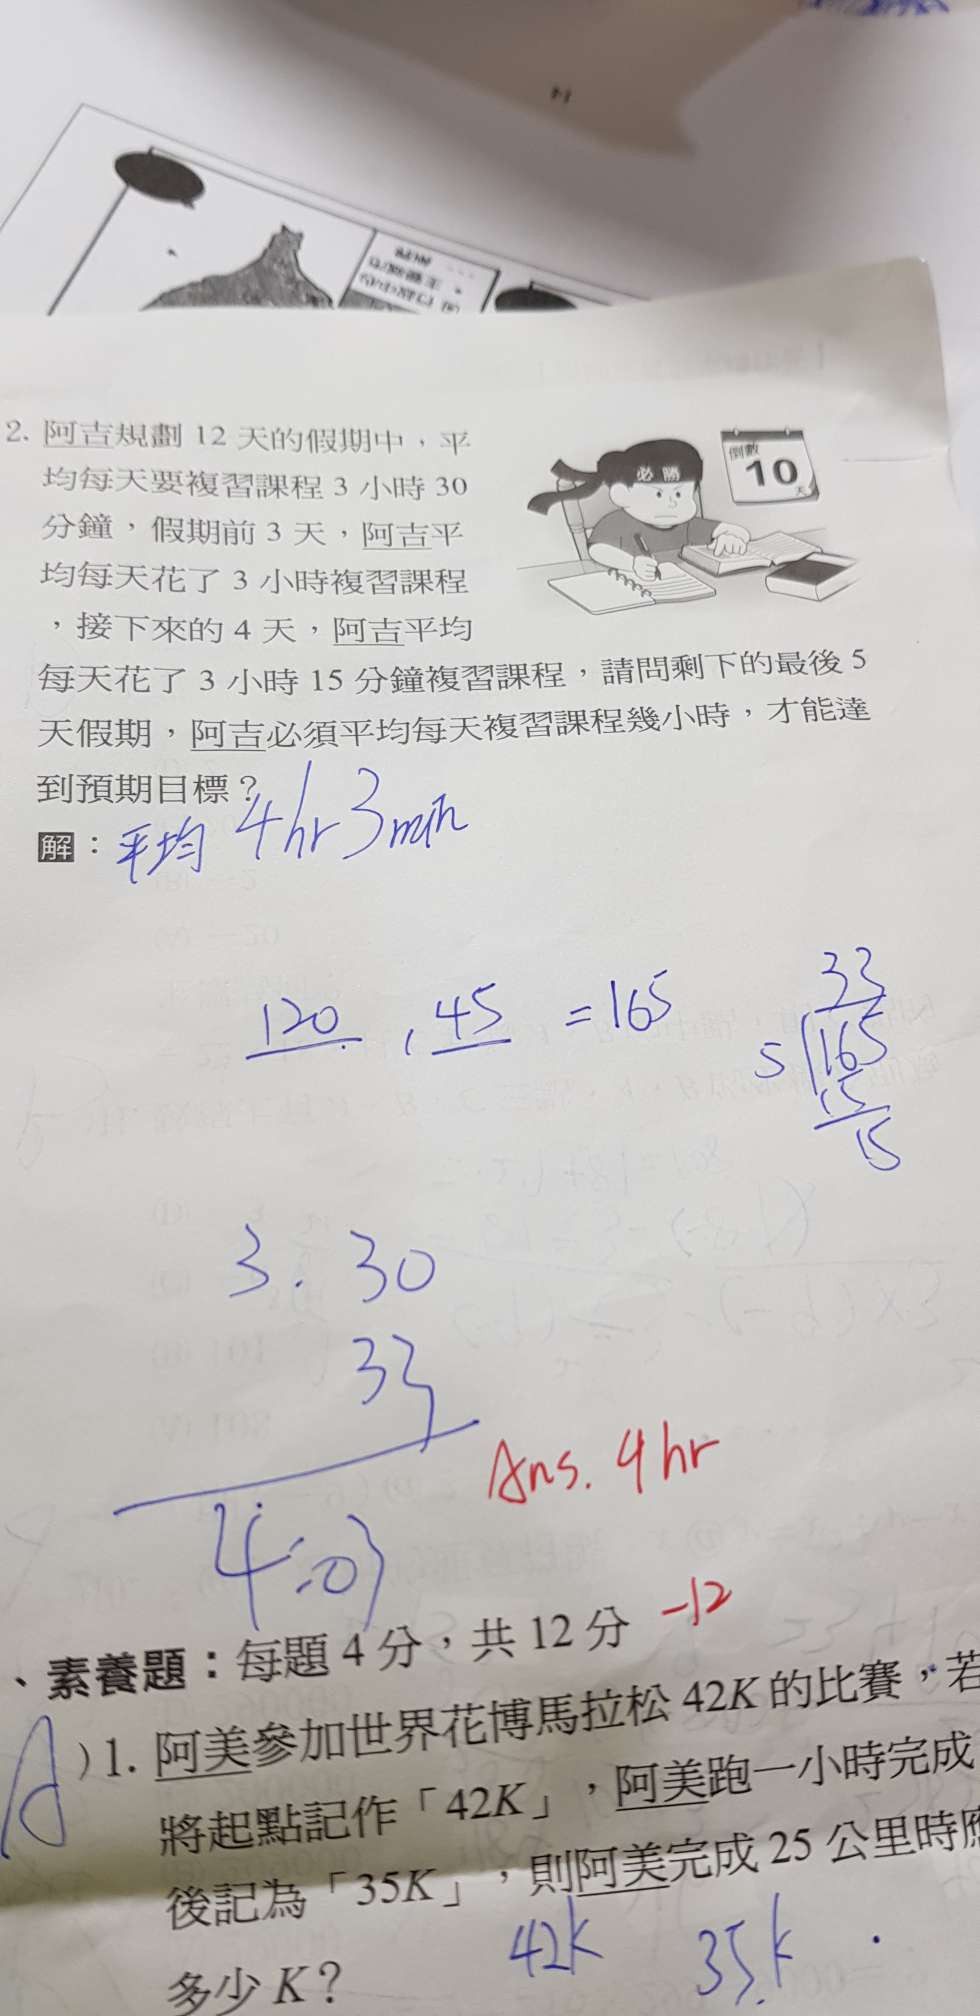 倒數
10
天
必勝
2. 阿吉規劃 12 天的假期中，平
均每天要複習課程 3 小時 30
分鐘，假期前 3 天，阿吉平
均每天花了 3 小時複習課程
，接下來的 4 天，阿吉平均
每天花了 3 小時 15 分鐘複習課程，請問剩下的最後 5
天假期，阿吉必須平均每天複習課程幾小時，才能達
到預期目標？
解：平均 4hr 3min
120 , 45 = 165
33
5 165
15
15
3. 30
33
4:03
Ans. 4hr
-12
、素養題：每題 4 分，共 12 分
A ) 1. 阿美參加世界花博馬拉松 42K 的比賽，若
將起點記作「42K」，阿美跑一小時完成
後記為「35K」，則阿美完成 25 公里時應
多少 K？
42k 35.k